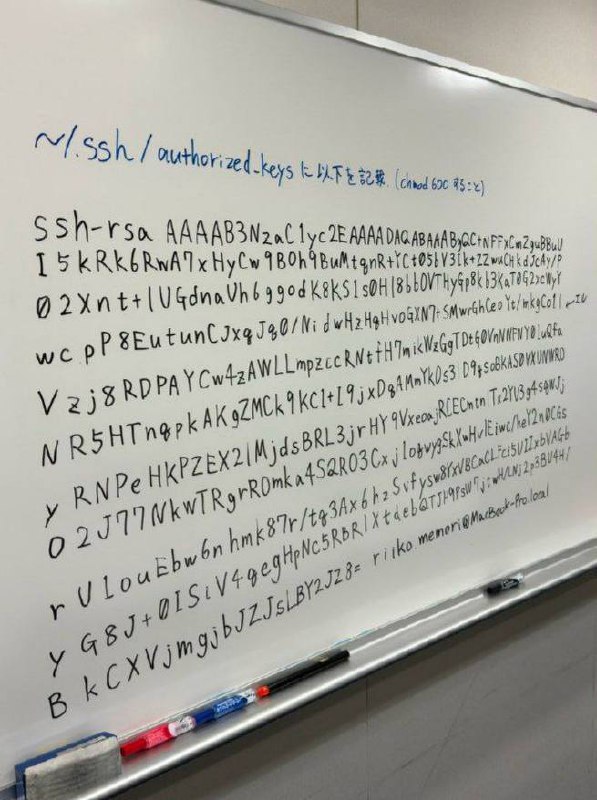 ~/.ssh/authorized_keys に以下を記載 (chmod 600 すること)
ssh-rsa AAAAB3NzaC1yc2EAAAADAQABAAABgQCtNFFxCmZguBBuU
I5kRk6RwA7xHyCw9BOh9BuMtqnR+YCt05bV3Ik+IZwuCHkdJcAy/P
02Xnt+lUGdnaUh6ggodK8KS1s0H18bbOVTHyGp8kb3KaT0G2xcWyY
wcpP8EutunCJxqJq0/NidwHzHqHvoGXN7+SMwrGhCeoYt/mkgCo1l
Vzj8RDPAYCw4zAWLLmpzccRNtfH7mikWzGgTDt60VmNNFVY01uQfa
NR5HTnqpkAKgZMCk9KC1+I9jxDqAMnYk0s3D9gsoBKASOVXUNWRD
yRNPeHKPZEX2lMjdsBRL3jrHY9VxeoajRCECntnTs2YU3g4sqwJj
O2J77NkwTRgrROmka4SQRO3CxjlobvygSkXwHvlEiwc/heY2nDC6s
rUlouEbw6nhmk87r/tg3Ax6hzSvfysw8YxVBCaCLFci5UIIxbVAGb
yG8J+0ISiV4gegHpNc5RbRlXtdebQTJh9PsW7j:wH/LNj2p3BU4H/
BkCXVjmgjbJZJsLBY2JZ8= riiko.memori@MacBook-Pro.local